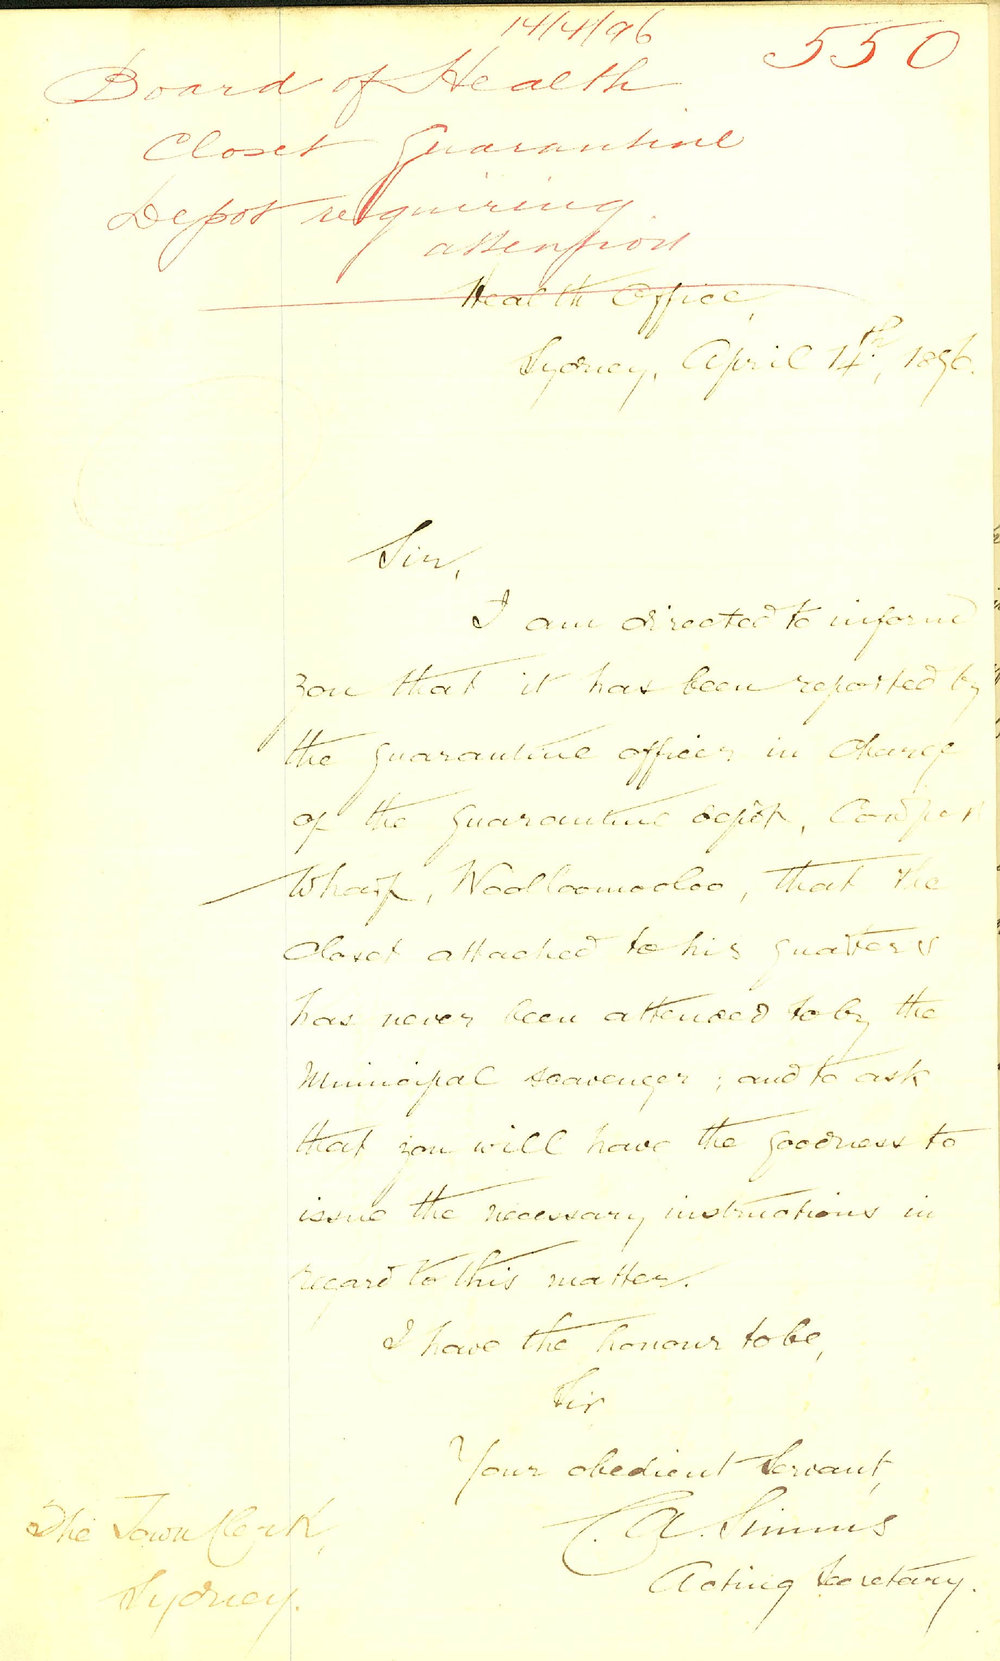 14/4/96
550
Board of Health
Closet Quarantine
Depot requiring
attention
Health Office,
Sydney, April 14th, 1896.
Sir,
I am directed to inform
you that it has been reported by
the quarantine officer in charge
of the quarantine depôt, Cowper
Wharf, Woolloomooloo, that the
closet attached to his quarters
has never been attended to by the
Municipal scavenger; and to ask
that you will have the goodness to
issue the necessary instructions in
regard to this matter.
I have the honour to be,
Sir
Your obedient Servant,
C. A. Simms
Acting Secretary.
The Town Clerk,
Sydney.